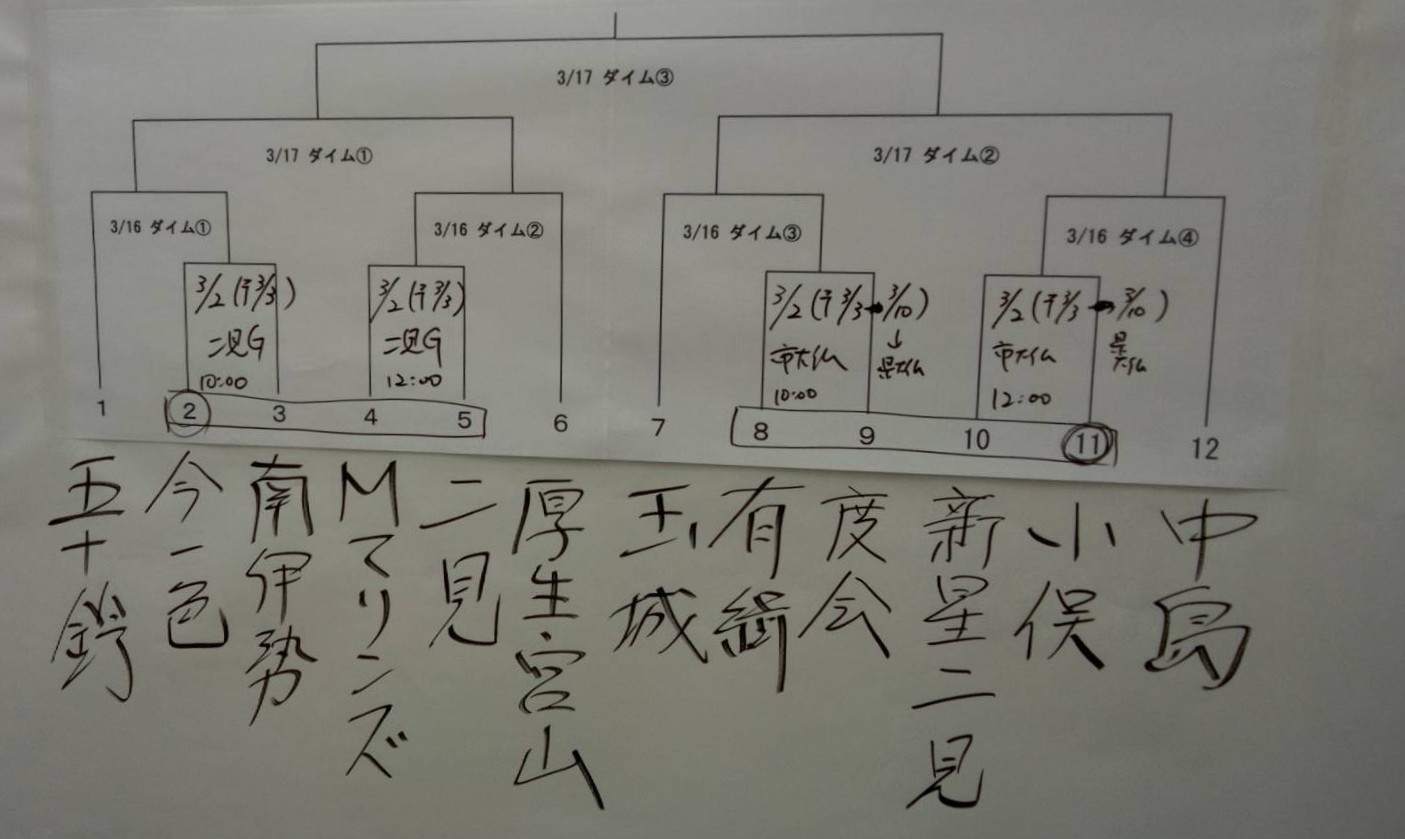 3/17 ダイム③
3/17 ダイム①
3/17 ダイム②
3/16 ダイム①
3/16 ダイム②
3/16 ダイム③
3/16 ダイム④
3/2(予3/3)
二見G
10:00
3/2(予3/3)
二見G
12:00
3/2(予3/3→3/10)
市大仏
↓
県大仏
10:00
3/2(予3/3→3/10)
市大仏
県大仏
12:00
1 2 3 4 5 6 7 8 9 10 11 12
五十鈴
今一色
南伊勢
Mマリンズ
二見
厚生・宮山
玉城
有緝
度会
新星二見
小俣
中島